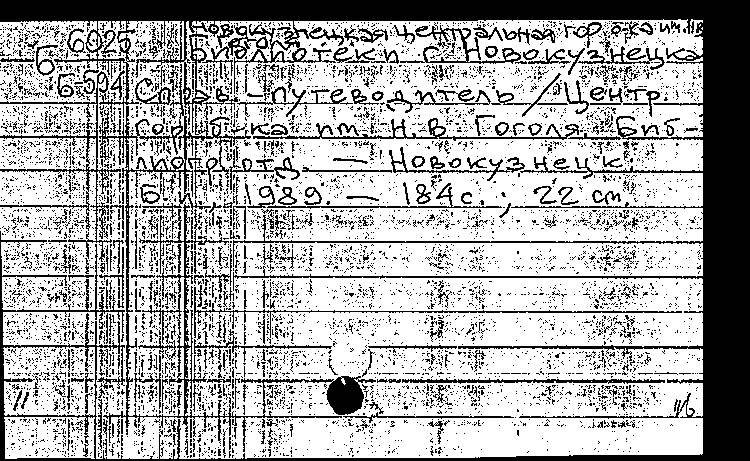 6025
Новокузнецкая центральная гор. б-ка им. Н.В.
Гоголя
Б
Библиотеки г. Новокузнецка
Б-594
Справ. - путеводитель / Центр.
гор. б-ка им. Н.В. Гоголя. Биб-
лиогр. отд. — Новокузнецк:
Б.и., 1989. — 184 с. ; 22 см.